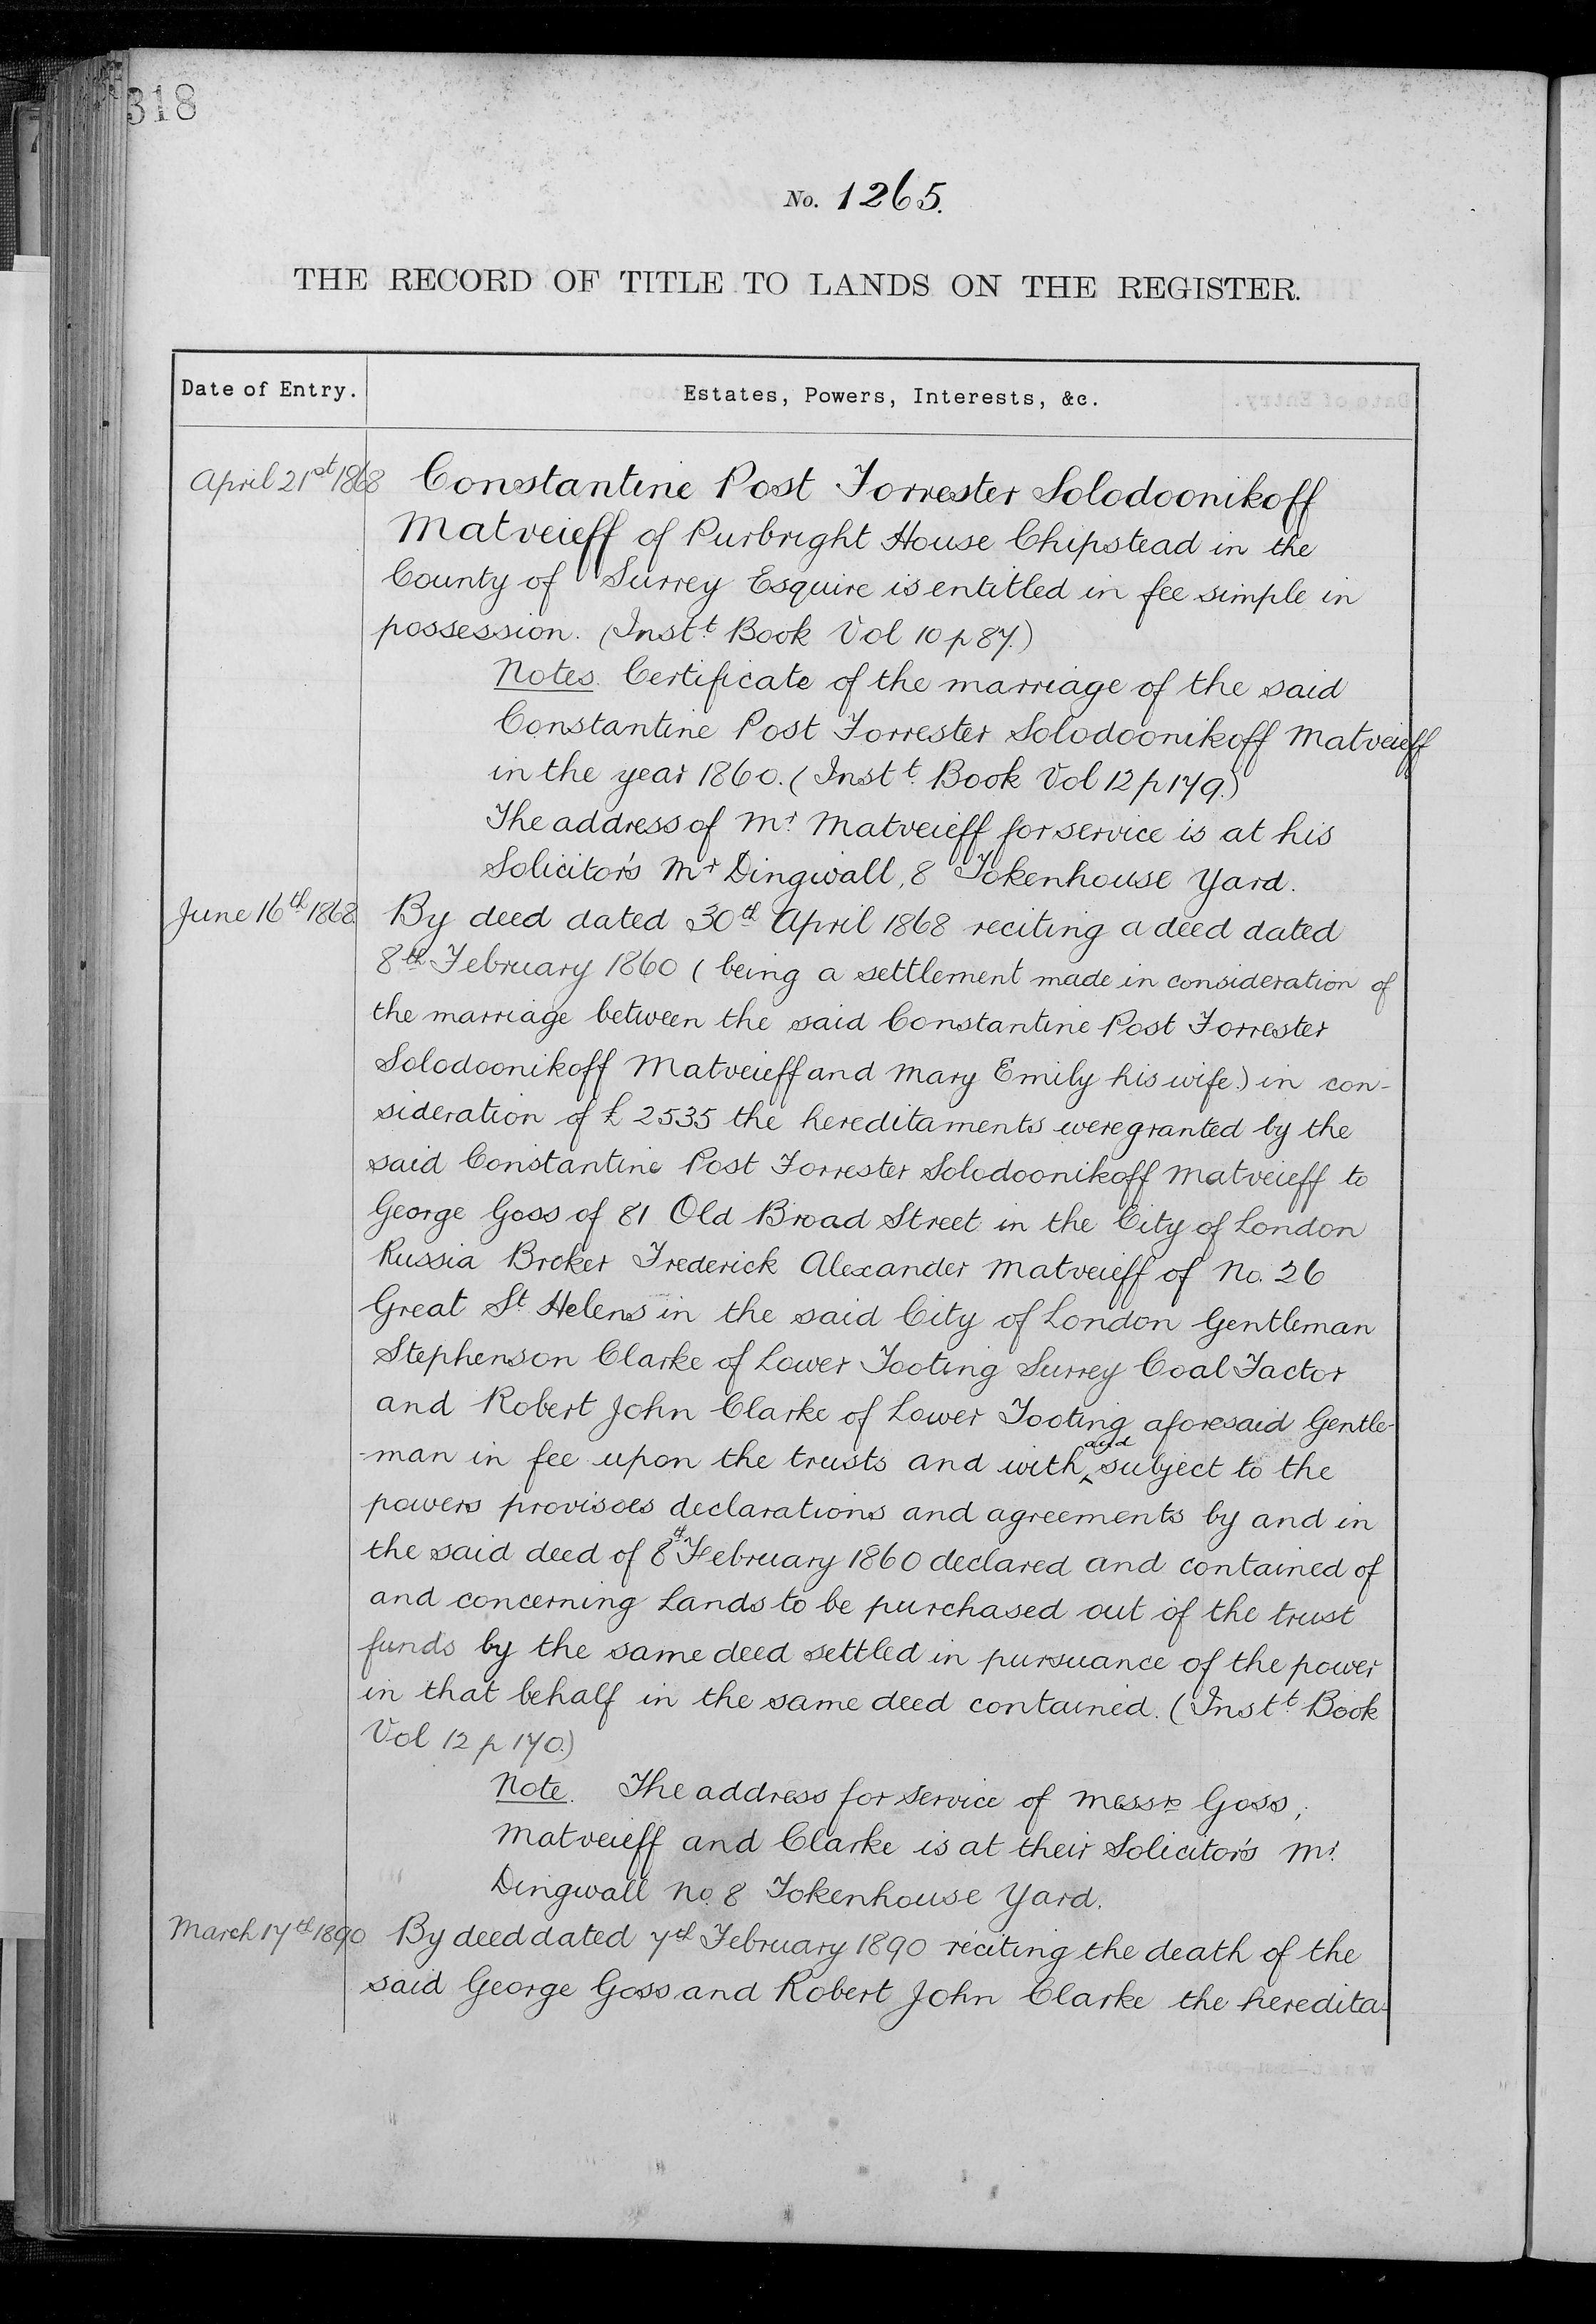 318
No. 1265.
THE RECORD OF TITLE TO LANDS ON THE REGISTER.
Date of Entry.
Estates, Powers, Interests, &c.
April 21st 1868 Constantine Post Forrester Solodoonikoff
Matveieff of Purbright House Chipstead in the
County of Surrey Esquire is entitled in fee simple in
possession. (Instt. Book Vol 10 p 87.)
Notes. Certificate of the marriage of the said
Constantine Post Forrester Solodoonikoff Matveieff
in the year 1860. (Instt. Book Vol 12 p 179.)
The address of Mr. Matveieff for service is at his
Solicitor's Mr Dingwall, 8 Tokenhouse Yard.
June 16th 1868. By deed dated 30th April 1868 reciting a deed dated
8th February 1860 (being a settlement made in consideration of
the marriage between the said Constantine Post Forrester
Solodoonikoff Matveieff and Mary Emily his wife.) in con-
sideration of £2535 the hereditaments were granted by the
said Constantine Post Forrester Solodoonikoff Matveieff to
George Goss of 81 Old Broad Street in the City of London
Russia Broker Frederick Alexander Matveieff of No. 26
Great St. Helens in the said City of London Gentleman
Stephenson Clarke of Lower Tooting Surrey Coal Factor
and Robert John Clarke of Lower Tooting aforesaid Gentle-
-man in fee upon the trusts and with and subject to the
powers provisoes declarations and agreements by and in
the said deed of 8th February 1860 declared and contained of
and concerning Lands to be purchased out of the trust
funds by the same deed settled in pursuance of the power
in that behalf in the same deed contained. (Instt. Book
Vol 12 p 170.)
Note. The address for service of Messrs Goss,
Matveieff and Clarke is at their Solicitor's Mr.
Dingwall No. 8 Tokenhouse Yard.
March 17th 1890 By deed dated 7th February 1890 reciting the death of the
said George Goss and Robert John Clarke the heredita-